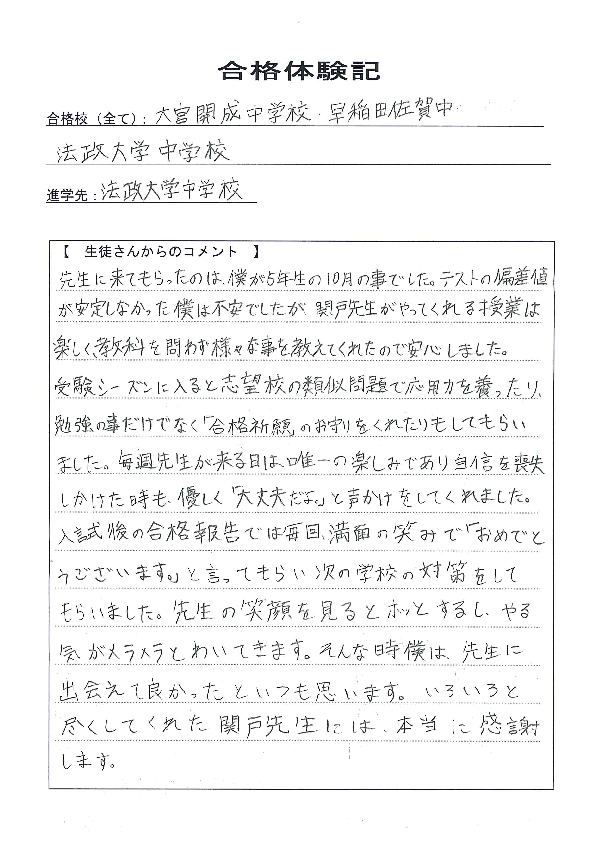 合格体験記
合格校（全て）：大宮開成中学校・早稲田佐賀中・
法政大学中学校
進学先：法政大学中学校
【　生徒さんからのコメント　】
先生に来てもらったのは、僕が5年生の10月の事でした。テストの偏差値
が安定しなかった僕は不安でしたが、関戸先生がやってくれる授業は
楽しく、教科を問わず様々な事を教えてくれたので安心しました。
受験シーズンに入ると志望校の類似問題で応用力を養ったり、
勉強の事だけでなく「合格祈願」のお守りをくれたりもしてもらい
ました。毎週先生が来る日は、唯一の楽しみであり自信を喪失
しかけた時も、優しく「大丈夫だよ。」と声かけをしてくれました。
入試後の合格報告では毎回、満面の笑みで「おめでと
うございます。」と言ってもらい次の学校の対策をして
もらいました。先生の笑顔を見るとホッとするし、やる
気がメラメラとわいてきます。そんな時僕は、先生に
出会えて良かったといつも思います。いろいろと
尽くしてくれた関戸先生には、本当に感謝
します。